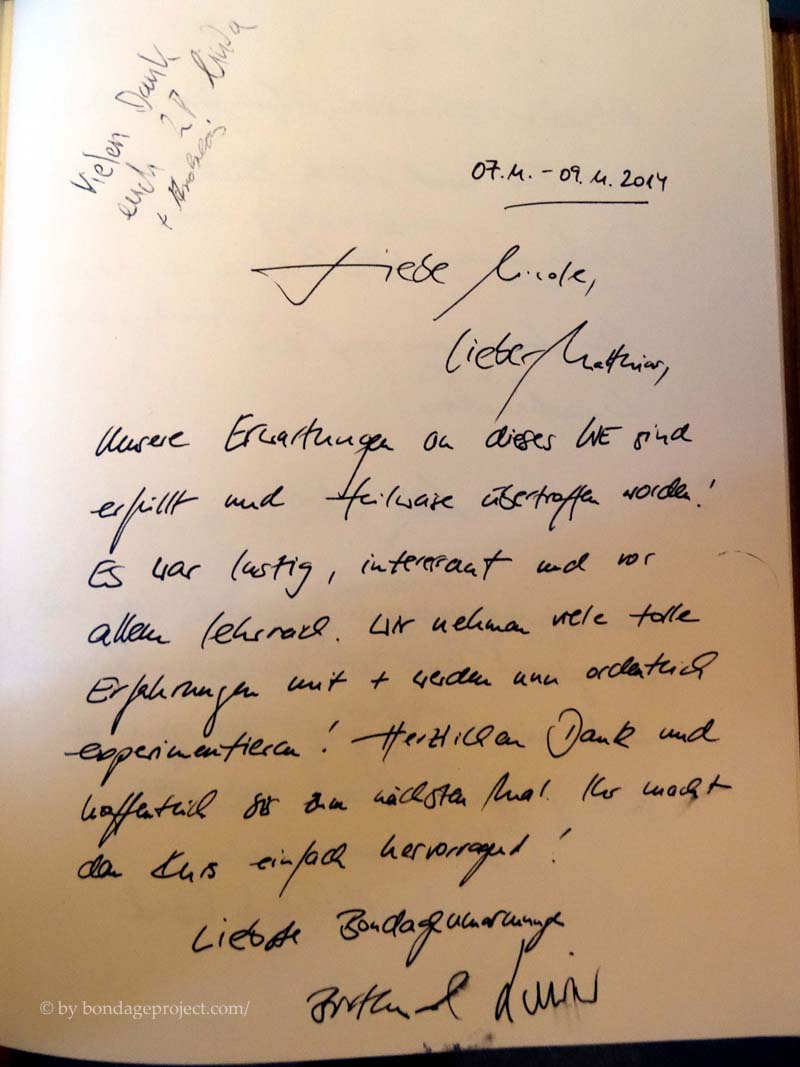 Vielen Dank
euch 2! Linda
+
07.11. - 09.11.2014
Liebe Nicole,
lieber Matthias,
Unsere Erwartungen an dieses WE sind
erfüllt und teilweise übertroffen worden!
Es war lustig, interessant und vor
allem lehrreich. Wir nehmen viele tolle
Erfahrungen mit + werden nun ordentlich
experimentieren! Herzlichen Dank und
hoffentlich bis zum nächsten Mal. Ihr macht
den Kurs einfach hervorragend!
Liebste Bondageumarmungen
© by bondageproject.com/